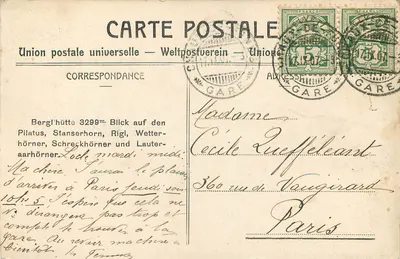 CARTE POSTALE.
Union postale universelle — Weltpostverein — Union
CORRESPONDANCE
Bergl'hütte 3299m. Blick auf den
Pilatus, Stanserhorn, Rigi, Wetter-
hörner, Schreckhörner und Lauter-
aarhörner.
mardi midi
le plaisir
d'arriver à Paris jeudi soir
10h.5 J'espère que cela ne
dérangera pas trop et
compte te trouver à la
gare. Au revoir ma chère à
bientôt
GARE
GARE
Madame
Cécile Queffeléant
360 rue de Vaugirard
Paris